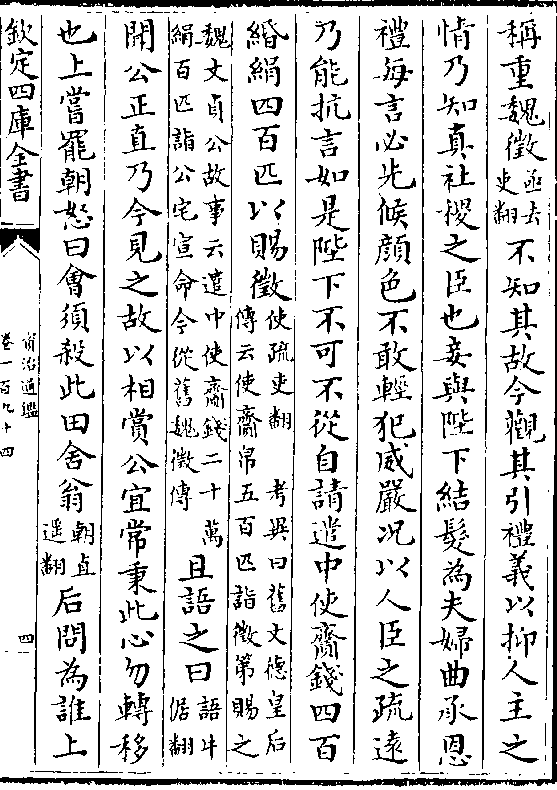 稱重魏徵亟去吏翻不知其故今觀其引禮義以抑人主之
情乃知真社稷之臣也妾與陛下結髮為夫婦曲承恩
禮每言必先候顔色不敢輕犯威嚴况以人臣之疏遠
乃能抗言如是陛下不可不從自請遣中使齎錢四百
緡絹四百匹以賜徵使疏吏翻考異曰舊文德皇后傳云使齎帛五百匹詣徵第賜之
魏文貞公故事云遣中使齎錢二十萬絹百匹詣公宅宣命今從舊魏徵傳且語之曰語牛倨翻
聞公正直乃今見之故以相賞公宜常秉此心勿轉移
也上嘗罷朝怒曰會須殺此田舍翁朝直遥翻后問為誰上
欽定四庫全書
資治通鑑
卷一百九十四
四